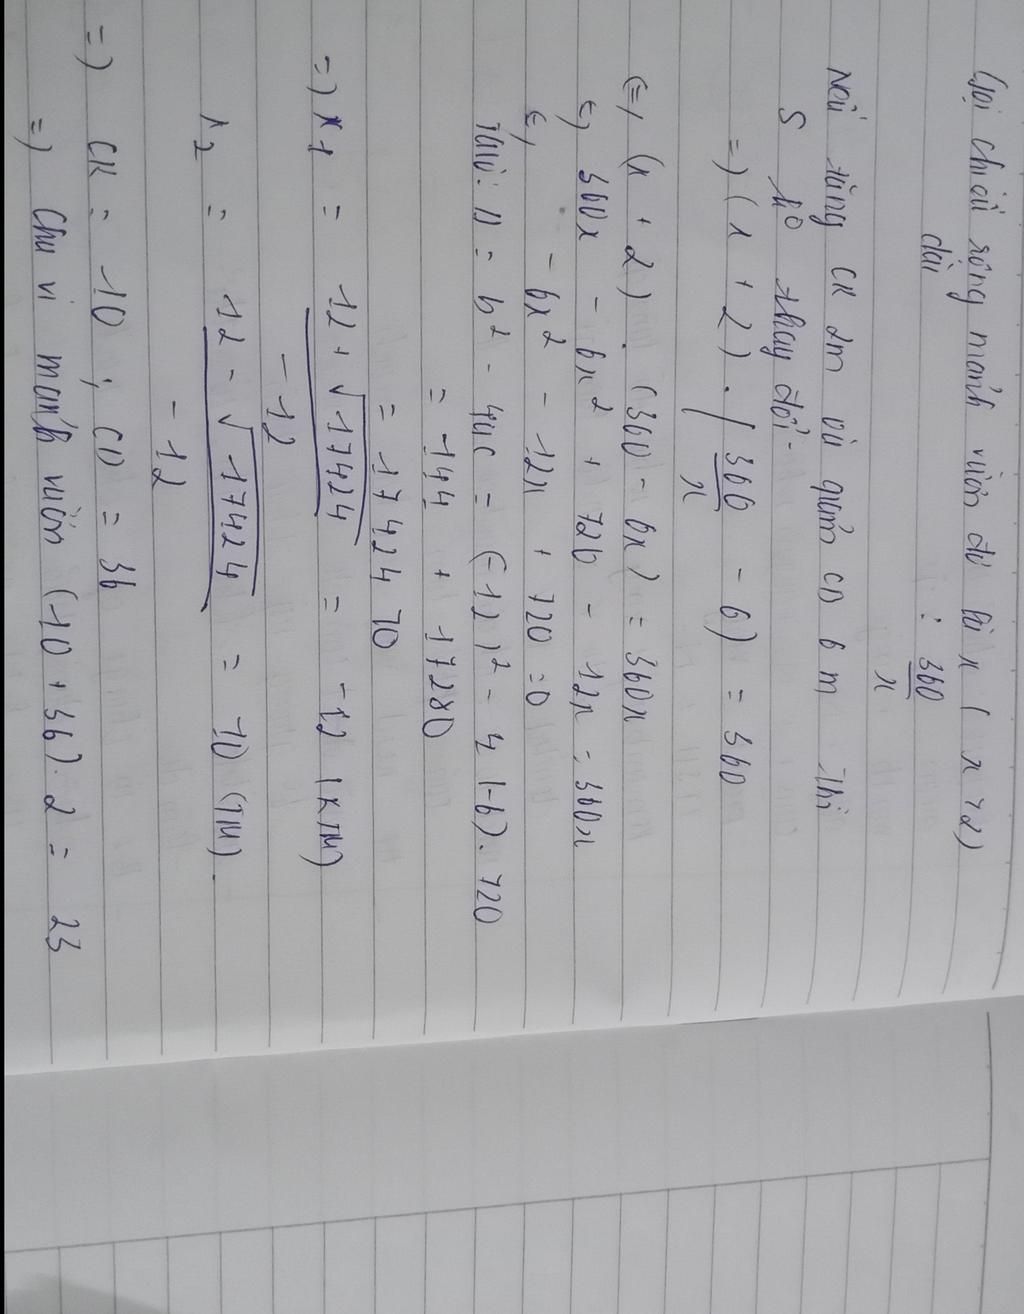 Gọi chiều rộng mảnh vườn đó là x ( x > 2)
dài : 360/x
Nếu tăng CR 2m và giảm CD 6 m thì
S k° thay đổi
=) (x + 2) . ( 360/x - 6) = 360
(=) (x + 2) . (360 - 6x) = 360x
(=) 360x - 6x² + 720 - 12x = 360x
(=) - 6x² - 12x + 720 = 0
Δ = b² - 4ac = (-12)² - 4 (-6). 720
= 144 + 17280
= 17424 > 0
=) x1 = 12 + √17424 / -12 = -12 (KTM)
x2 = 12 - √17424 / -12 = 10 (TM).
=) CR = 10 ; CD = 36
=) Chu vi mảnh vườn (10 + 36). 2 = 23